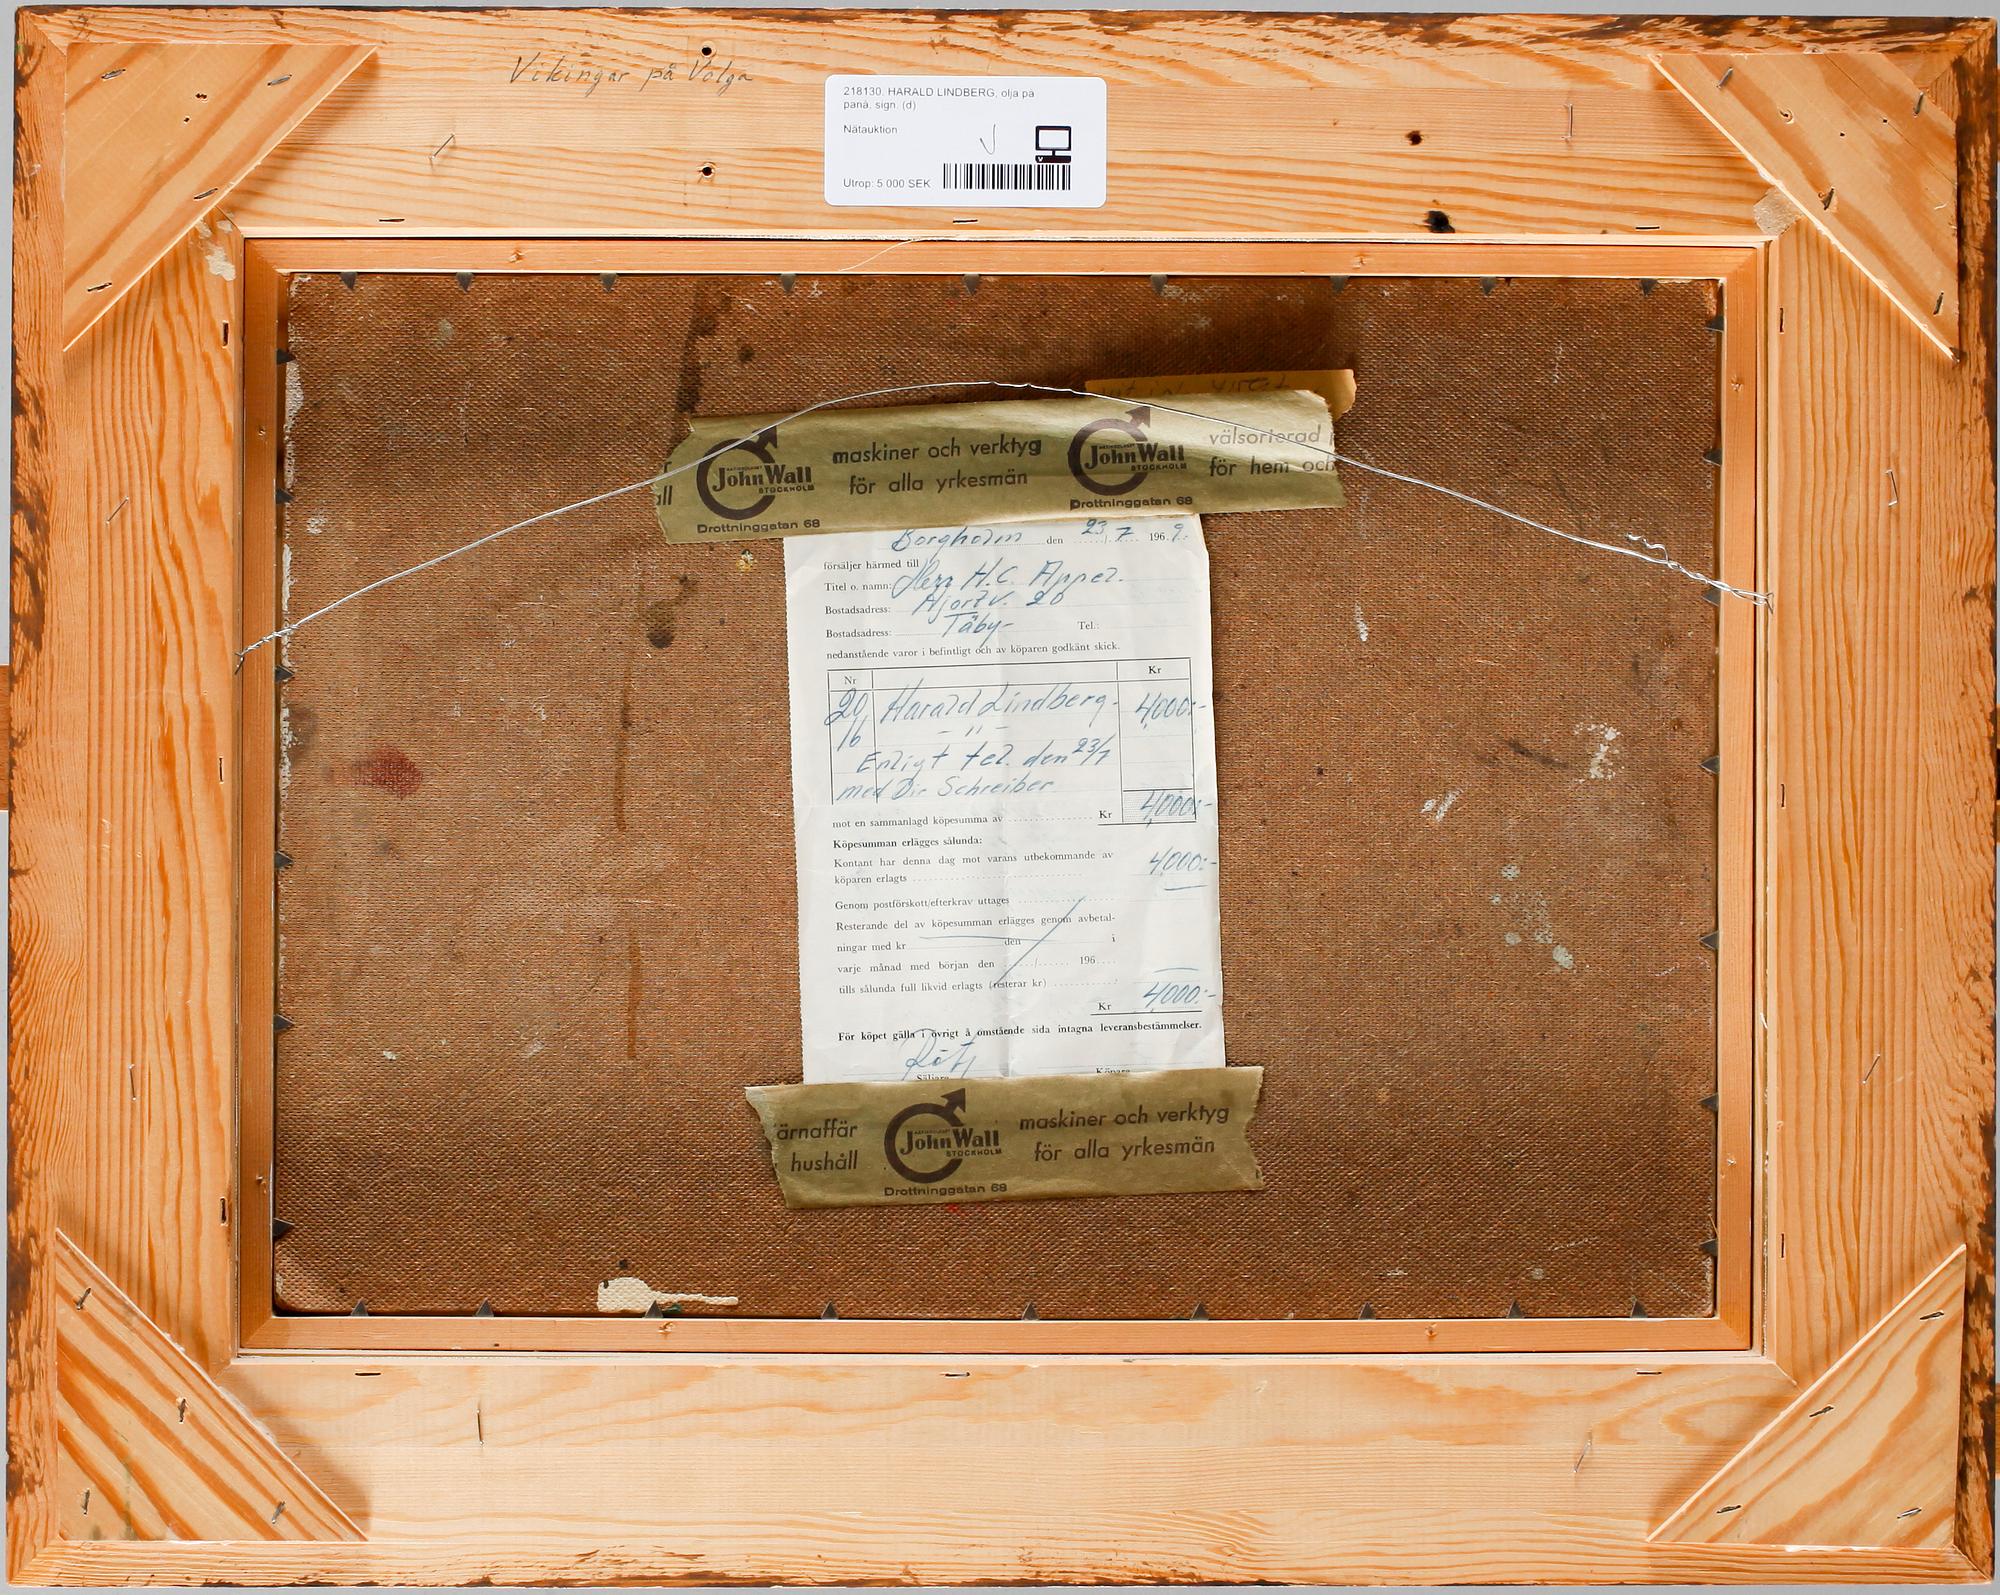 Vikingar på Volga
218130. HARALD LINDBERG, olja på
panå, sign. (d)
Nätauktion
Utrop: 5 000 SEK
maskiner och verktyg
för alla yrkesmän
John Wall
STOCKHOLM
Drottninggatan 68
John Wall
STOCKHOLM
Drottninggatan 68
välsorterad
för hem och
Borgholm den 23/7 1969.
försäljer härmed till
Titel o. namn: Herr H.C. Appel.
Bostadsadress: Hjortv. 20
Bostadsadress: Täby- Tel.:
nedanstående varor i befintligt och av köparen godkänt skick.
Nr Kr
20 Harald Lindberg- 4,000:-
16 - " -
Enligt tel. den 23/7
med Dir Schreiber
mot en sammanlagd köpesumma av Kr 4,000:-
Köpesumman erlägges sålunda:
Kontant har denna dag mot varans utbekommande av
köparen erlagts 4,000:-
Genom postförskott/efterkrav uttages
Resterande del av köpesumman erlägges genom avbetal-
ningar med kr den i
varje månad med början den / 196
tills sålunda full likvid erlagts (resterar kr)
Kr 4000:-
För köpet gälla i övrigt å omstående sida intagna leveransbestämmelser.
Säljare Köpare
ärnaffär
hushåll
John Wall
STOCKHOLM
Drottninggatan 68
maskiner och verktyg
för alla yrkesmän